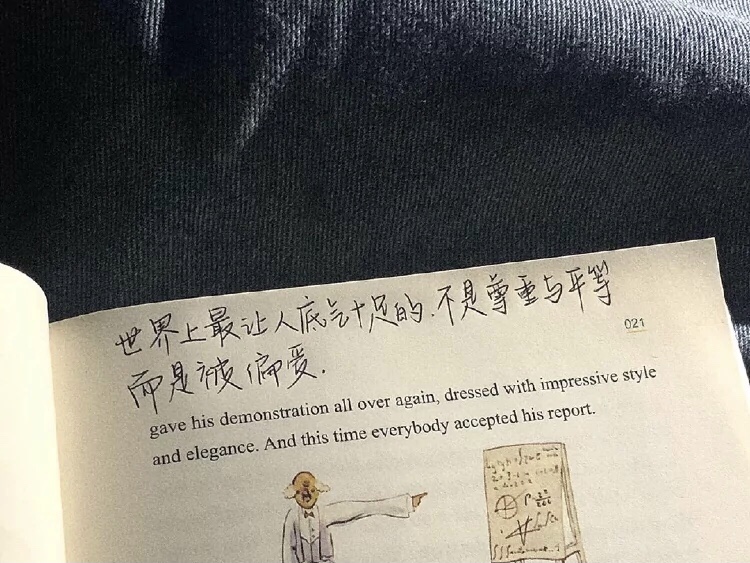 世界上最让人底气十足的.不是尊重与平等
而是被偏爱.
021
gave his demonstration all over again, dressed with impressive style
and elegance. And this time everybody accepted his report.